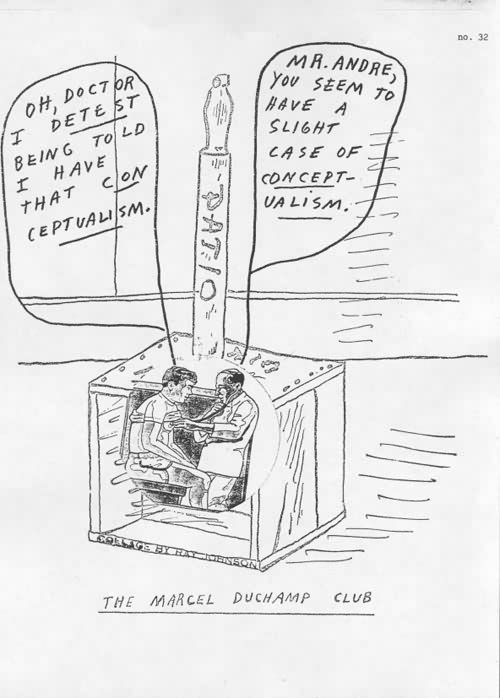 no. 32
OH, DOCTOR
I DETEST
BEING TOLD
I HAVE
THAT CON
CEPTUALISM.
MR. ANDRE,
YOU SEEM TO
HAVE A
SLIGHT
CASE OF
CONCEPT-
UALISM.
COLLAGE BY RAY JOHNSON
THE MARCEL DUCHAMP CLUB